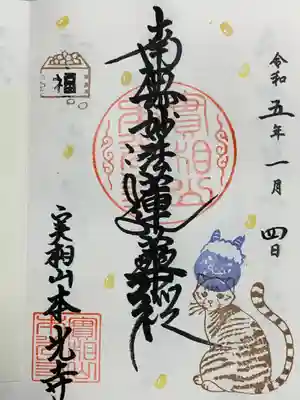 令和五年一月四日
南無妙法蓮華経
福
実相山本光寺
實相山